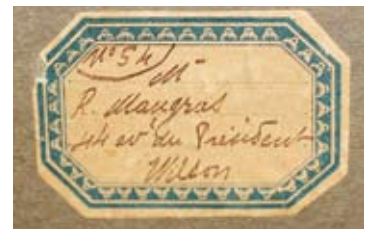 N° 54
Mr
R. Maugras
44 av du Président
Wilson